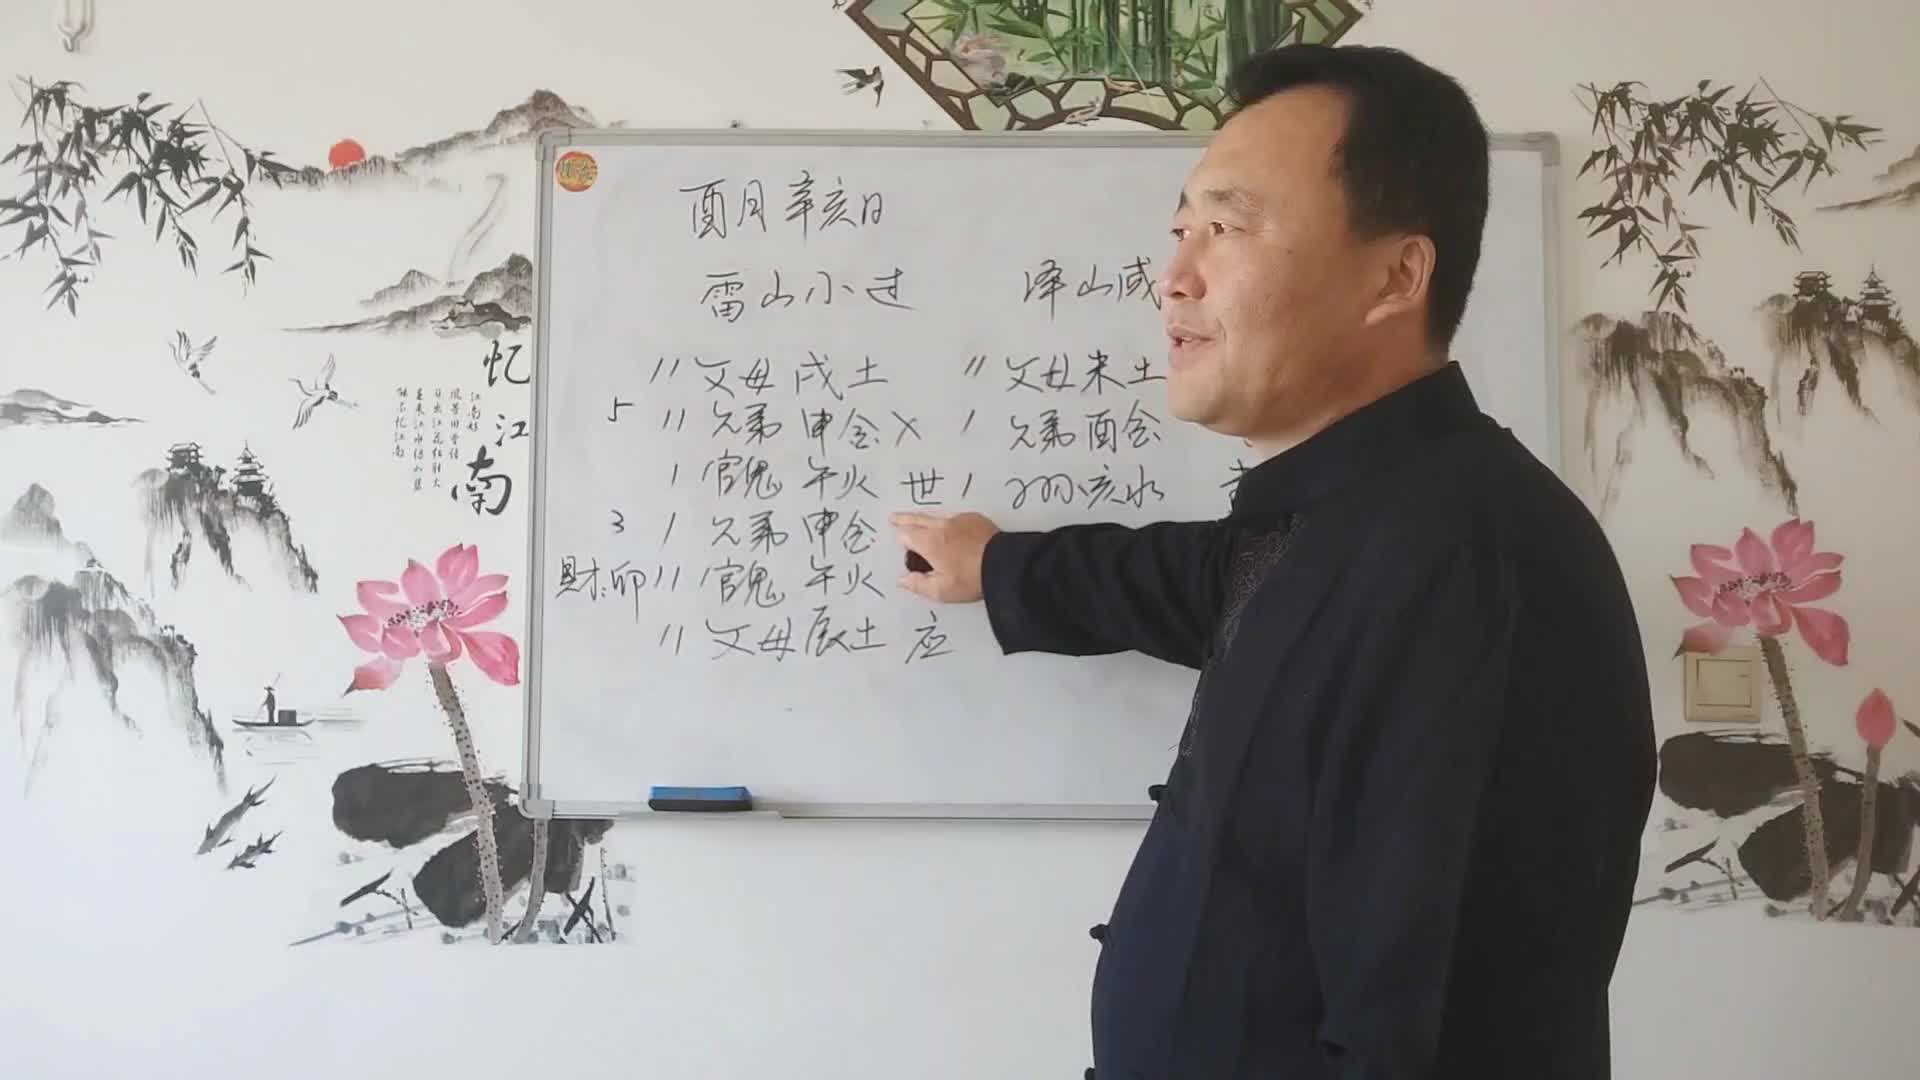 酉月 辛亥日
雷山小过 泽山咸
〃 父母 戌土 〃 父母 未土
5 〃 兄弟 申金 X ′ 兄弟 酉金
′ 官鬼 午火 世 ′ 子孙 亥水
3 ′ 兄弟 申金
财:卯 〃 官鬼 午火
〃 父母 辰土 应
忆江南
江南好
风景旧曾谙
日出江花红胜火
春来江水绿如蓝
能不忆江南